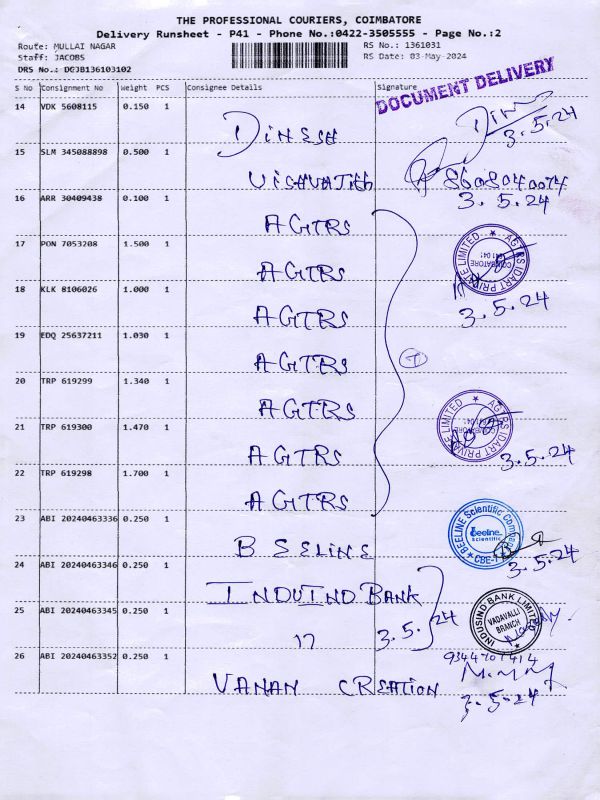 THE PROFESSIONAL COURIERS, COIMBATORE
Delivery Runsheet - P41 - Phone No.:0422-3505555 - Page No.:2
Route: MULLAI NAGAR
RS No.: 1361031
Staff: JACOBS
RS Date: 03-May-2024
DRS No.: DGJB136103102
DOCUMENT DELIVERY
S No Consignment No Weight PCS Consignee Details Signature
14 VDK 5608115 0.150 1 DINESH 3.5.24
15 SLM 345088898 0.500 1 VISHVATHH 8608040074
3.5.24
16 ARR 30409438 0.100 1 AGTRS
17 PON 7053208 1.500 1 AGTRS
AGTRS IDART PRIVATE LIMITED
COIMBATORE
641 041
18 KLK 8106026 1.000 1 AGTRS 3.5.24
19 EDQ 25637211 1.030 1 AGTRS
7
20 TRP 619299 1.340 1 AGTRS
21 TRP 619300 1.470 1 AGTRS
AGTRS IDART PRIVATE LIMITED
COIMBATORE
641 041
3.5.24
22 TRP 619298 1.700 1 AGTRS
23 ABI 20240463336 0.250 1 BSELINE
BEELINE Scientific
Beeline
Scientific
CBE-
3.5.24
24 ABI 20240463346 0.250 1 INDUIND BANK
INDUSIND BANK LIMITED
VADAVALLI
BRANCH
25 ABI 20240463345 0.250 1 17 3.5.24
26 ABI 20240463352 0.250 1 VANAN CRSATION
3-5-24